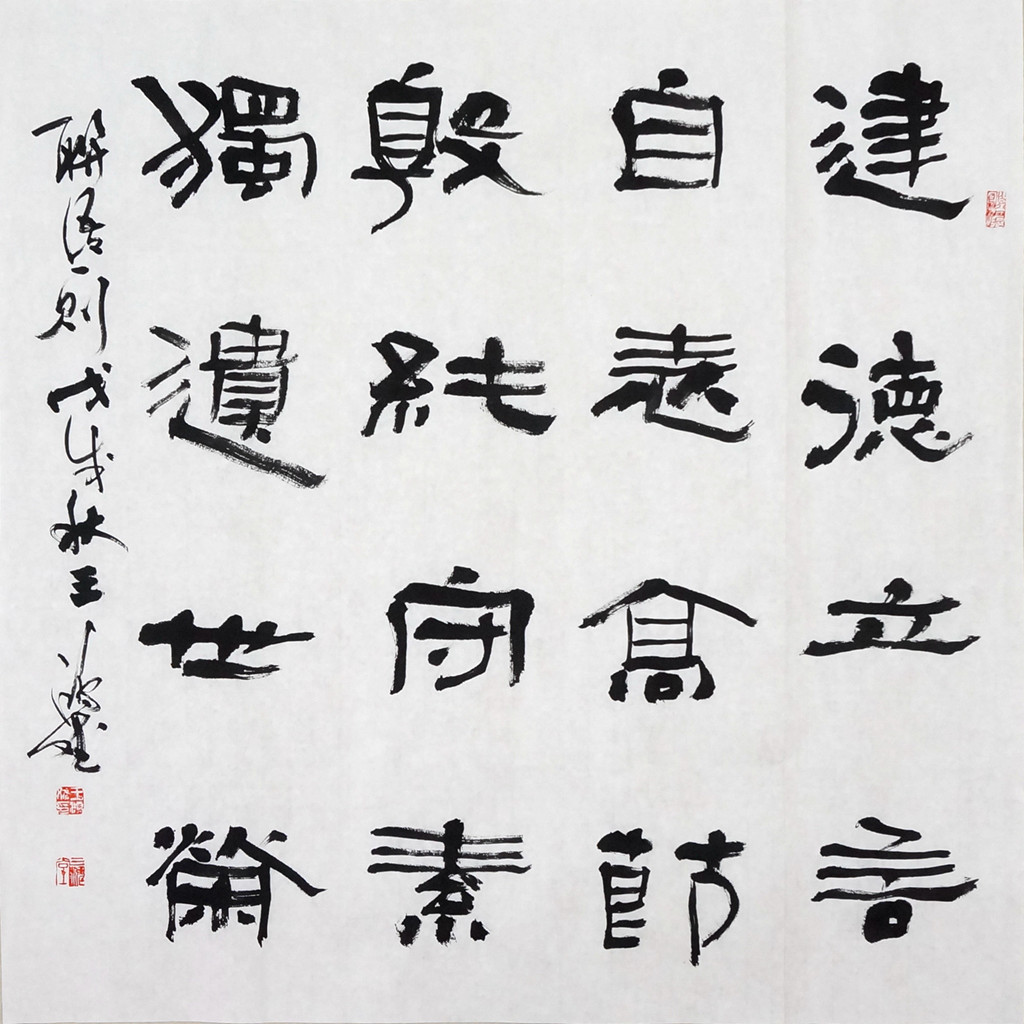 建德立言
自表高節
殷純守素
獨遺世榮
聯語一則戊戌秋王